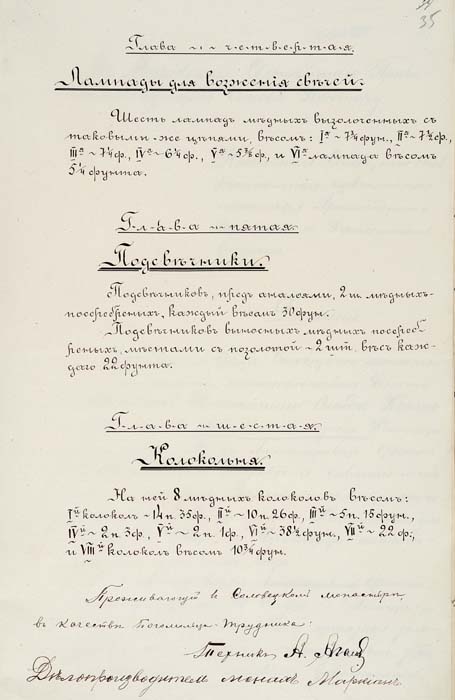 35
Глава четвертая.
Лампады для возженія свѣчей.
Шесть лампад мѣдных вызолоченных съ
таковыми-же цѣпями, вѣсом: Iя ~ 7¾ фун., IIя ~ 7½ ф.,
IIIя ~ 7¼ ф., IVя ~ 6¼ ф., Vя ~ 5⅜ ф., и VIя лампада вѣсомъ
5¼ фунта.
Глава пятая.
Подсвѣчники.
Подсвѣчниковъ, пред аналоями, 2 ш. мѣдныхъ-
посеребреных, каждый вѣсом 30 фун.
Подсвѣчников выносных мѣдных посереб-
реных, мѣстами съ позолотой ~ 2 шт, вѣсъ каж-
даго 22 фунта.
Глава шестая.
Колокольня.
На ней 8 мѣдных колоколовъ вѣсом:
Iй колокол ~ 14 п. 35 ф., IIй ~ 10 п. 26 ф., IIIй ~ 5 п. 15 фун.,
IVй ~ 2 п. 3 ф, Vй ~ 2 п. 1 ф., VIй ~ 38½ фун, VIIй ~ 22 ф.;
и VIIIй колокол вѣсом 10¾ фун.
Проживающій в Соловецком монастырѣ,
въ качествѣ Богомольца-трудника:
Техникъ А.
Дѣлопроизводитель монахъ